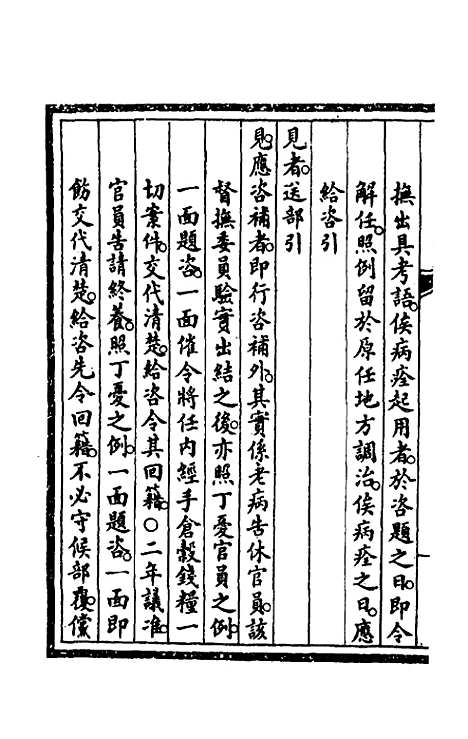 撫出具考語。俟病痊起用者。於咨題之日。即令
解任。照例留於原任地方調治。俟病痊之日。應
給咨引
見者。送部引
見。應咨補者。即行咨補外。其實係老病告休官員。該
督撫委員驗實出結之後。亦照丁憂官員之例。
一面題咨。一面催令將任內經手倉穀錢糧一
切案件。交代清楚。給咨令其回籍。○二年議准。
官員告請終養。照丁憂之例。一面題咨。一面即
飭交代清楚。給咨先令回籍。不必守候部覆。儻